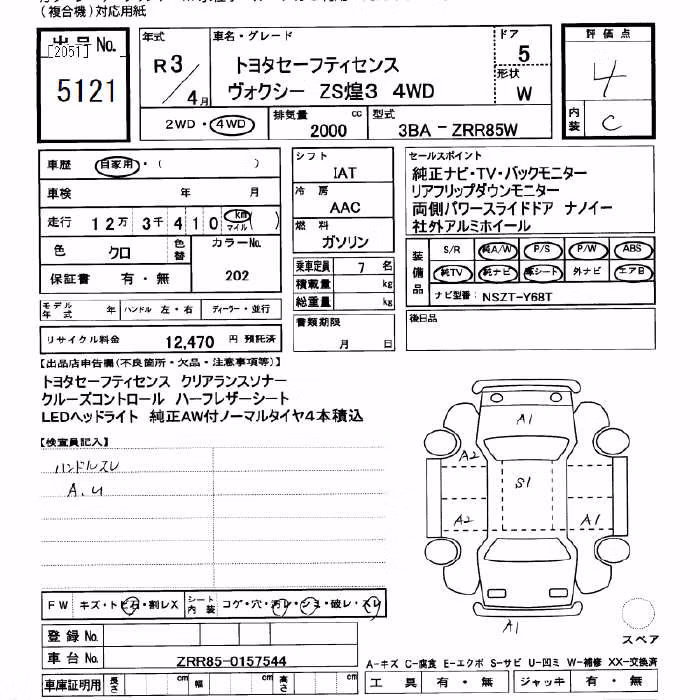 (複合機)対応用紙
出品No.
[2051]
5121
年式
R 3/4月
車名・グレード
トヨタセーフティセンス
ヴォクシー ZS煌3 4WD
ドア
5
形状
W
評価点
4
内装
C
2WD・4WD
排気量
2000 cc
型式
3BA-ZRR85W
車歴 自家用・( )
車検 年 月
走行 12万 3千 4 1 0 km マイル( )
色 クロ
色替
カラーNo.
202
保証書 有・無
モデル年式 年
ハンドル 左・右
ディーラー・並行
リサイクル料金 12,470 円 預託済
シフト
IAT
冷房
AAC
燃料
ガソリン
乗車定員 7 名
積載量 kg
総重量 kg
書類期限
月 日
セールスポイント
純正ナビ・TV・バックモニター
リアフリップダウンモニター
両側パワースライドドア ナノイー
社外アルミホイール
装備品
S/R 純A/W P/S P/W ABS
純TV 純ナビ 革シート 外ナビ エアB
ナビ型番: NSZT-Y68T
後日品
【出品店申告欄(不良箇所・欠品・注意事項等)】
トヨタセーフティセンス クリアランスソナー
クルーズコントロール ハーフレザーシート
LEDヘッドライト 純正AW付ノーマルタイヤ4本積込
【検査員記入】
ハンドルスレ
A.U
A1
A2
S1
A2
A1
A1
スペア
FW キズ・トビ石・割レX
シート内装 コゲ・穴・汚レ・シミ・破レ・スレ
登録No.
車台No. ZRR85-0157544
車庫証明用 長さ cm 幅 cm 高さ cm
A-キズ C-腐食 E-エクボ S-サビ U-凹ミ W-補修 XX-交換済
工具 有・無 ジャッキ 有・無